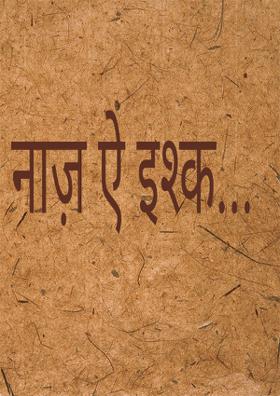 नाज़ ऐ इश्क...